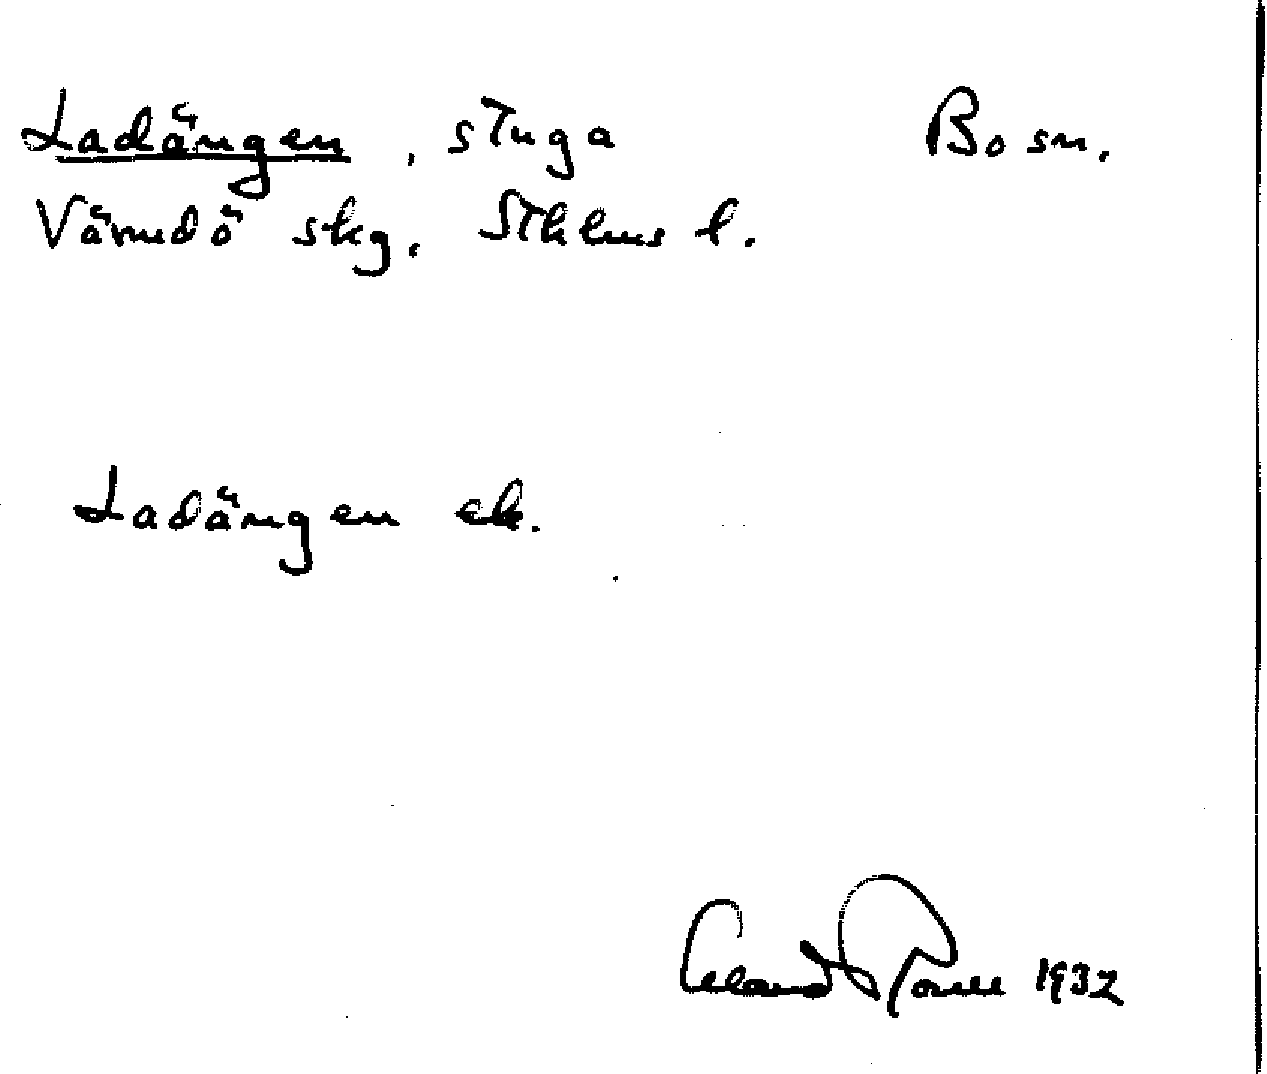 Ladängen, stuga Bo sn.
Värmdö skg, Sthlms l.
Ladängen ek.
1932